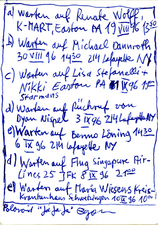 a) warten auf Renate Wolff
K-MART, Easton PA 19 VIII 96 13:30
b) warten auf Michael Danroth
30 VIII 96 14:30 214 Lafayette NY
c) warten auf Lisa Stefanelli +
Nikki Easton PA 1 IX 96 11:00
Starmans
d) warten auf Rückruf von
Dyan Nigel 3 IX 96 214 Lafayette NY
e) warten auf Benno Löning 14:30
6 IX 96 214 Lafayette NY
d) warten auf Flug Singapore Air-
Lines 25 JFK 8 IX 96 21:00
e) warten auf Maria Wiesens Kreis-
Krankenhaus Schwetzingen 10 IX 96 10:00
"Ja Ja Ja"